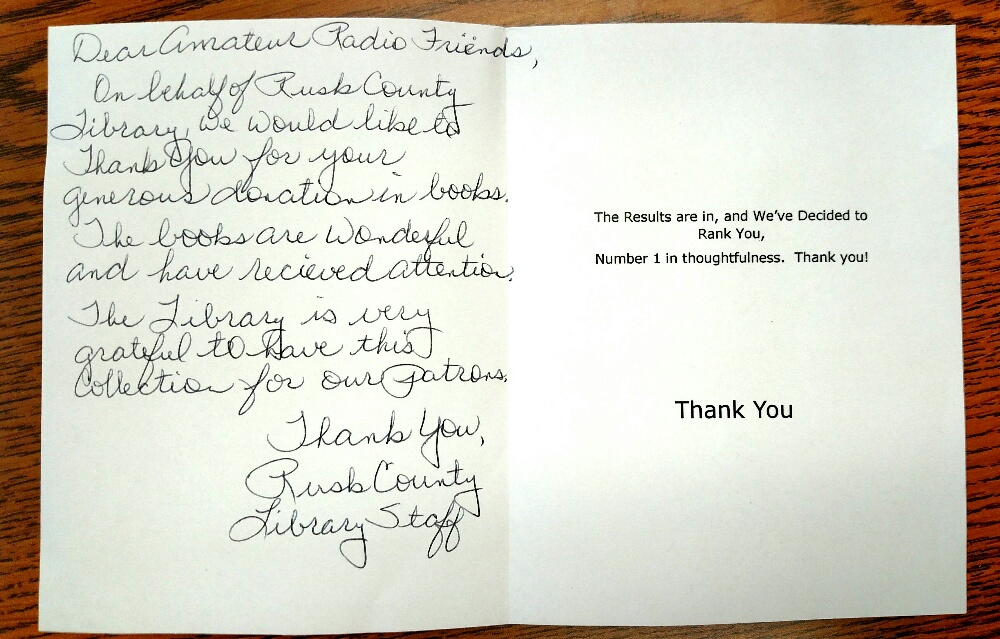 Dear Amateur Radio Friends,
On behalf of Rusk County
Library, we would like to
Thank You for your
generous donation in books.
The books are wonderful
and have recieved attention.
The Library is very
grateful to have this
Collection for our Patrons.
Thank You,
Rusk County
Library Staff
The Results are in, and We've Decided to
Rank You,
Number 1 in thoughtfulness. Thank you!
Thank You